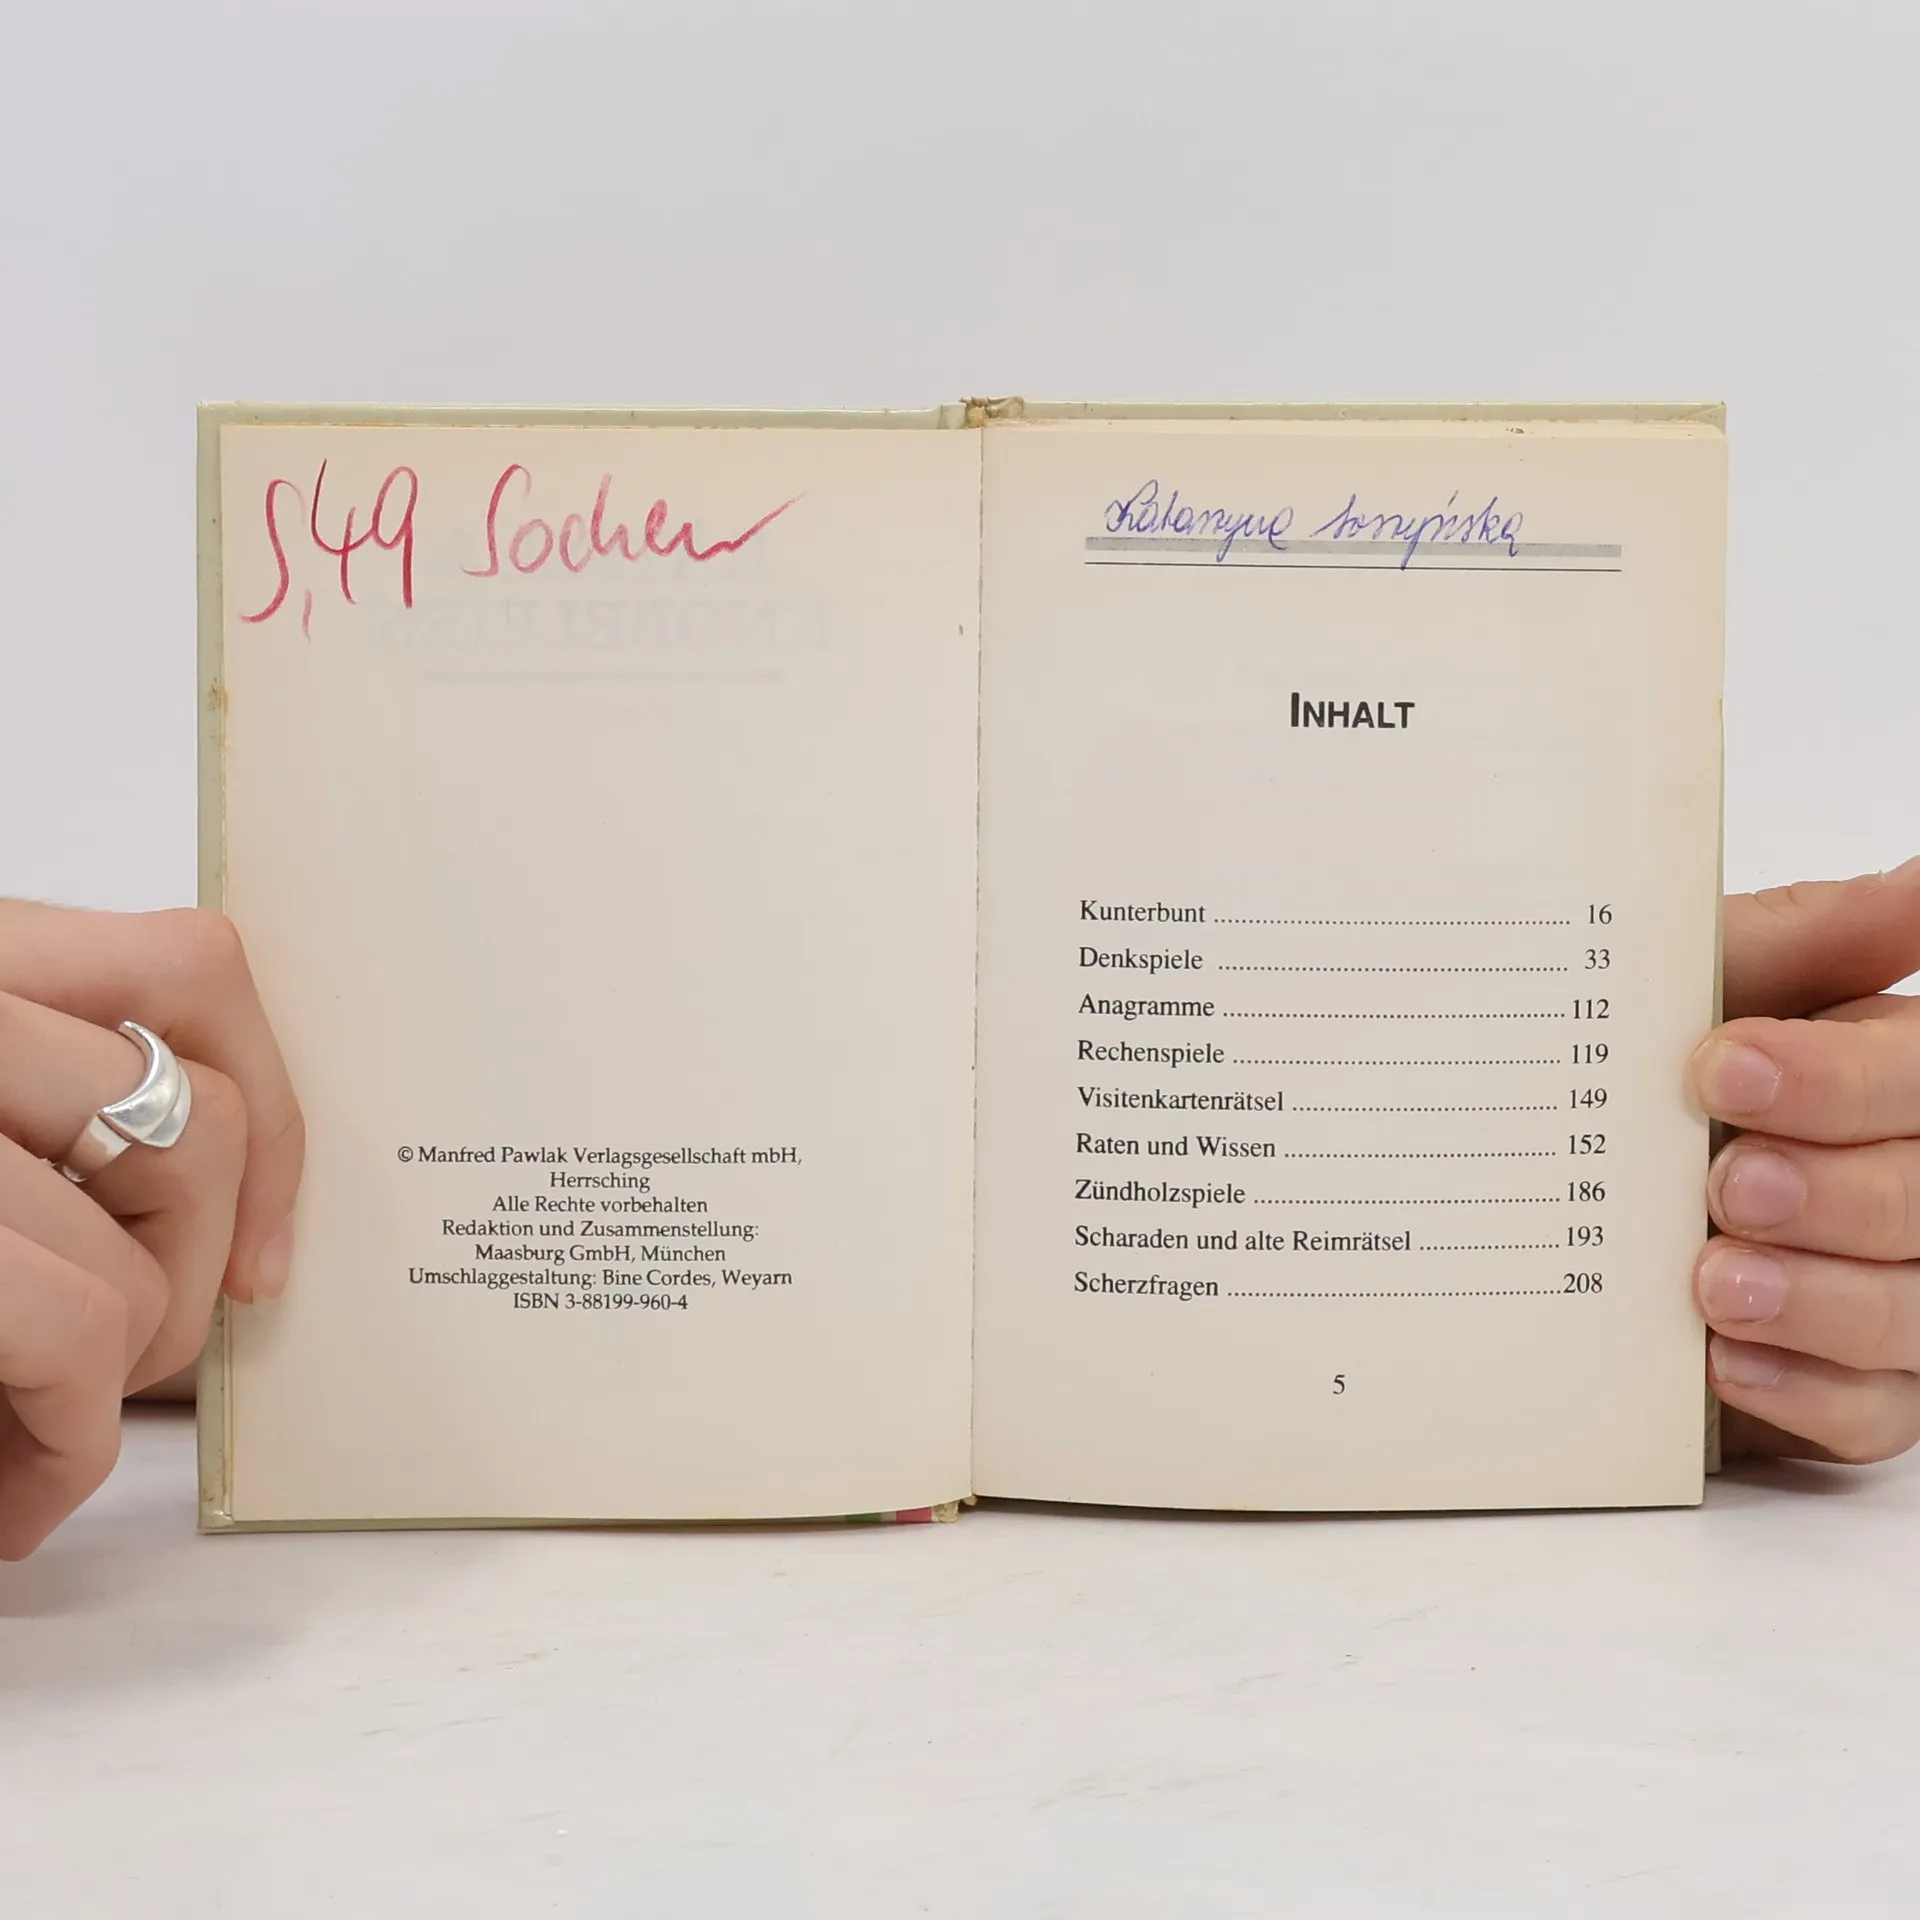 © Manfred Pawlak Verlagsgesellschaft mbH,
Herrsching
Alle Rechte vorbehalten
Redaktion und Zusammenstellung:
Maasburg GmbH, München
Umschlaggestaltung: Bine Cordes, Weyarn
ISBN 3-88199-960-4
INHALT
Kunterbunt ... 16
Denkspiele ... 33
Anagramme ... 112
Rechenspiele ... 119
Visitenkartenrätsel ... 149
Raten und Wissen ... 152
Zündholzspiele ... 186
Scharaden und alte Reimrätsel ... 193
Scherzfragen ... 208
5